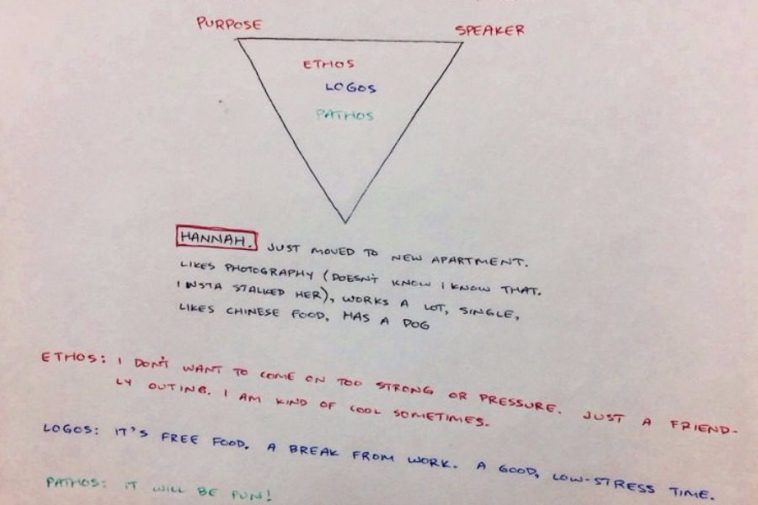 PURPOSE
SPEAKER
ETHOS
LOGOS
PATHOS
HANNAH. JUST MOVED TO NEW APARTMENT.
LIKES PHOTOGRAPHY (DOESN'T KNOW I KNOW THAT.
I INSTA STALKED HER), WORKS A LOT, SINGLE,
LIKES CHINESE FOOD, HAS A DOG
ETHOS: I DON'T WANT TO COME ON TOO STRONG OR PRESSURE. JUST A FRIEND-
LY OUTING. I AM KIND OF COOL SOMETIMES.
LOGOS: IT'S FREE FOOD. A BREAK FROM WORK. A GOOD, LOW-STRESS TIME.
PATHOS: IT WILL BE FUN!